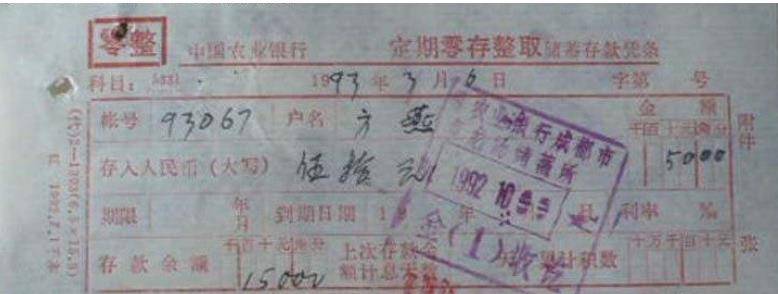 零整
中国农业银行 定期零存整取储蓄存款凭条
科目: 1993年3月6日 字第 号
帐号 93067 户名 方燕 金额
千百十元角分
附件
存入人民币(大写) 伍拾元 5000
期限 年月 到期日期 19 年 月 利率 ‰
存款余额 千百十元角分 15000 上次存款余额计息天数 累计积数 十万千百十元 张
农业银行成都市
储蓄所
1992 10
(1)收讫